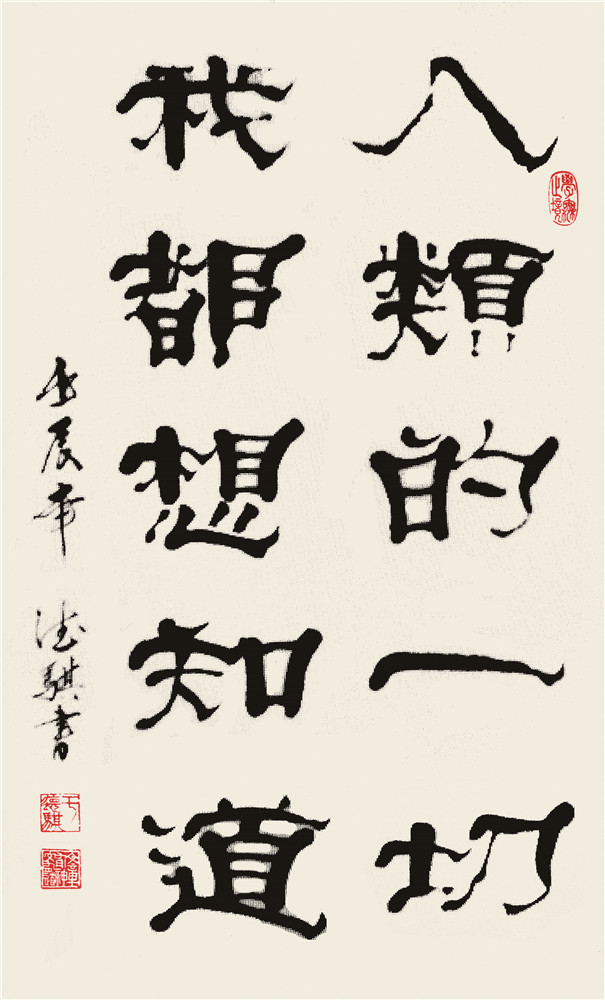 人類的一切
我都想知道
壬辰年 德騏書